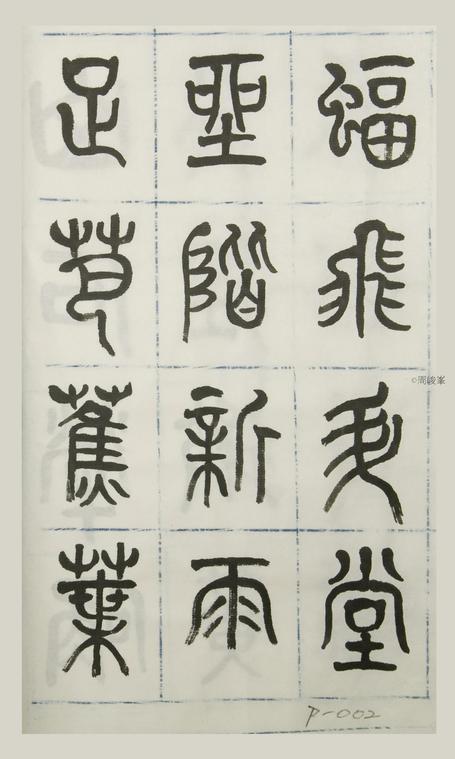 蝠飛升堂
坐階新雨
足芭蕉葉
©周峻峯
P-002